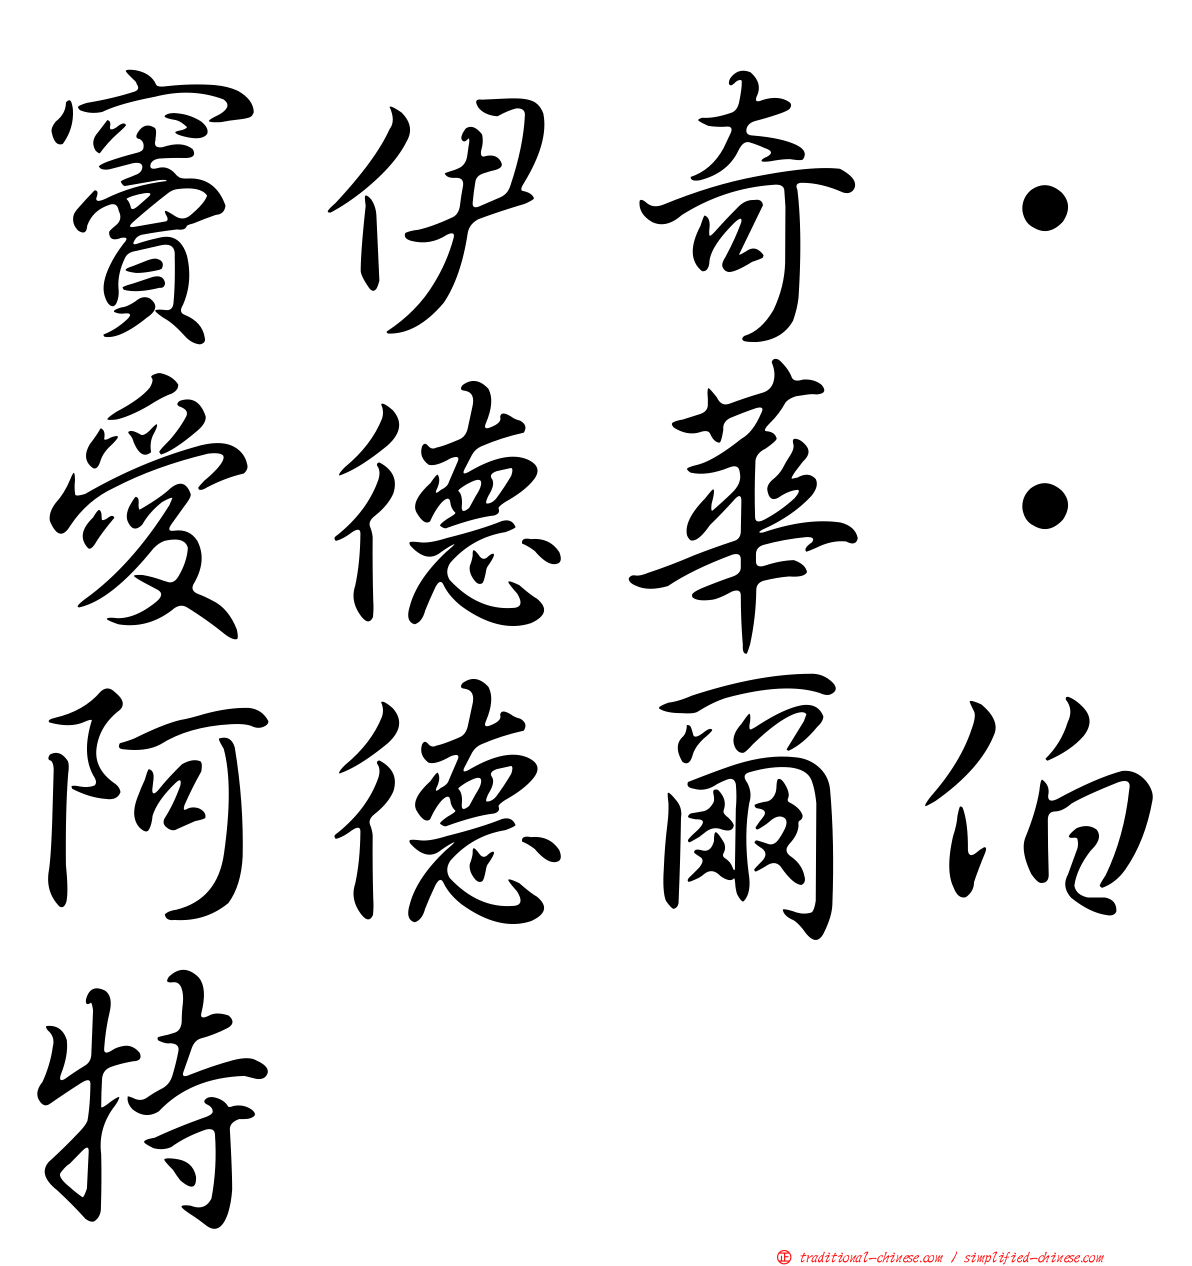 竇伊奇·
愛德華·
阿德爾伯
特
正 traditional-chinese.com / simplified-chinese.com